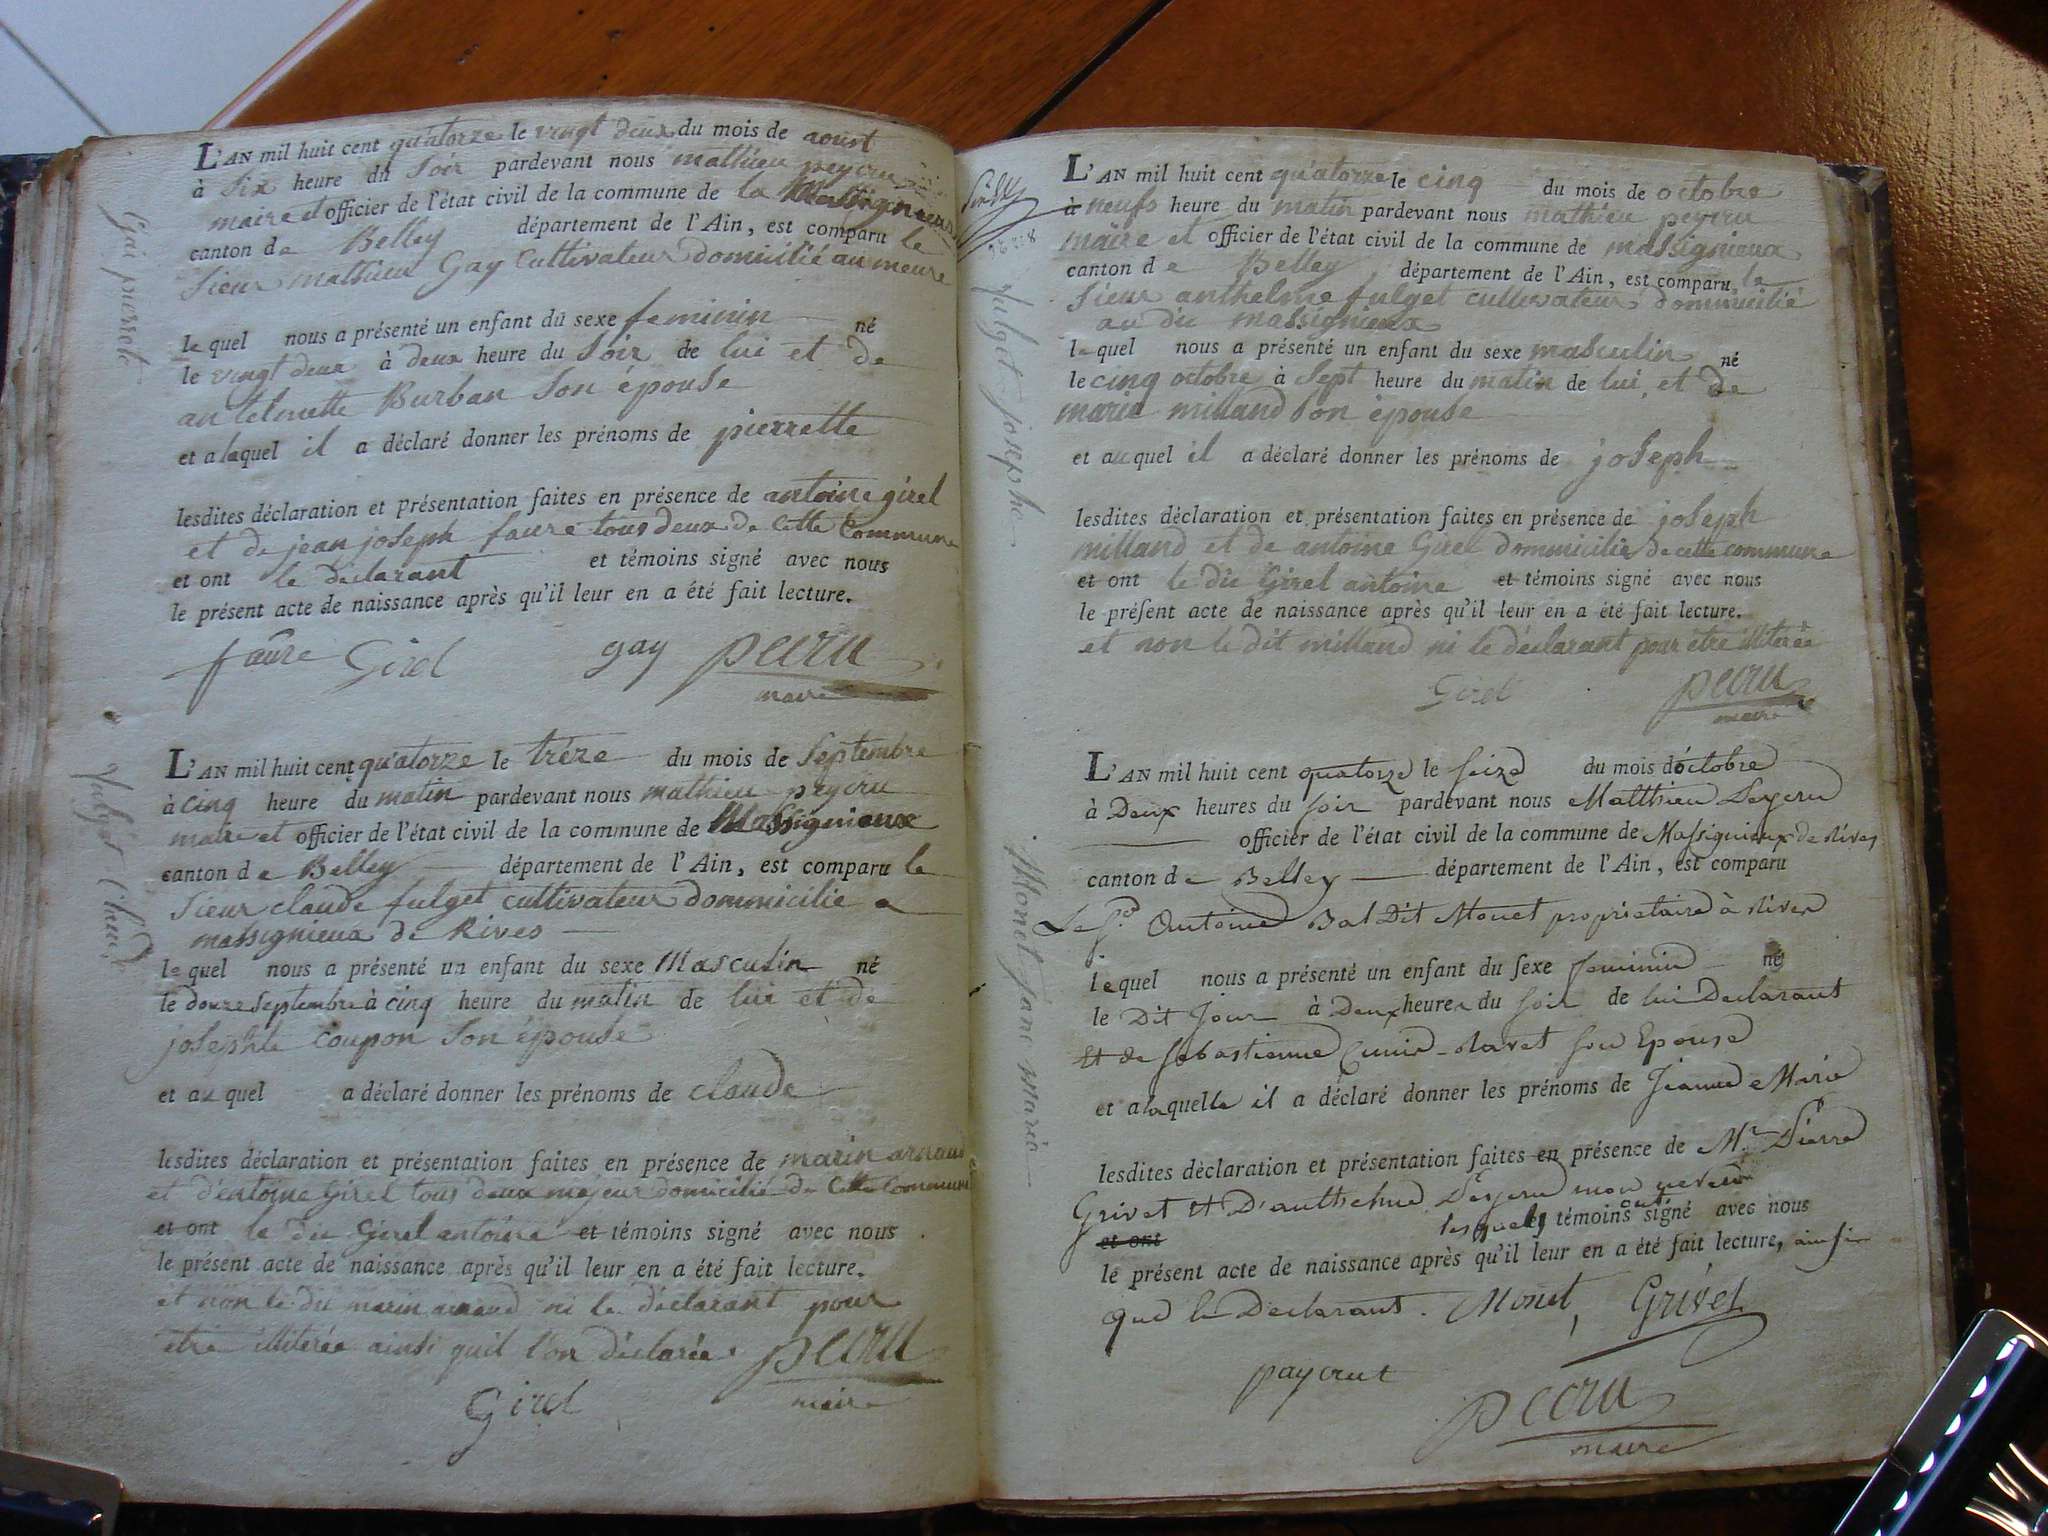 L'AN mil huit cent quatorze le vingt deux du mois de aoust
à Six heure du Soir pardevant nous mathieu peycru
maire et officier de l'état civil de la commune de la Massignieux
canton de Belley département de l'Ain, est comparu le
Sieur mathieu Gay cultivateur domicilié au meure
lequel nous a présenté un enfant du sexe feminin né
le vingt deux à deux heure du Soir de lui et de
antelmette Burban Son épouse
et alaquel il a déclaré donner les prénoms de pierrette
lesdites déclaration et présentation faites en présence de antoine girel
et de jean joseph faure tous deux de cette commune
et ont le declarant et témoins signé avec nous
le présent acte de naissance après qu'il leur en a été fait lecture.
faure Girel gay pecru
maire
Gai pierrete
L'AN mil huit cent quatorze le trèze du mois de Septembre
à cinq heure du matin pardevant nous mathieu peycru
maire et officier de l'état civil de la commune de Massignieux
canton de Belley département de l'Ain, est comparu le
Sieur claude fulget cultivateur dommicilie a
massignieux de Rives
lequel nous a présenté un enfant du sexe Masculin né
le douze Septembre à cinq heure du matin de lui et de
josephte coupon Son épouse
et auquel a déclaré donner les prénoms de claude
lesdites déclaration et présentation faites en présence de marin arnaud
et d'entoine Girel tous deux majeur domicilié de cette commune
et ont le dit Girel antoine et témoins signé avec nous
le présent acte de naissance après qu'il leur en a été fait lecture.
et non le dit marin arnaud ni le déclarant pour
être illiterée ainsi quil l'on déclarée. pecru
Girel maire
L'AN mil huit cent quatorze le cinq du mois de octobre
à neufs heure du matin pardevant nous mathieu peycru
maire et officier de l'état civil de la commune de massignieux
canton de Belley département de l'Ain, est comparu le
Sieur anthelme fulget cultivateur dommicilié
au dit massignieux
lequel nous a présenté un enfant du sexe masculin né
le cinq octobre à Sept heure du matin de lui et de
marie milland Son épouse
et auquel il a déclaré donner les prénoms de joseph
lesdites déclaration et présentation faites en présence de joseph
milland et de antoine Girel dommicilié de cette commune
et ont le dit Girel antoine et témoins signé avec nous
le présent acte de naissance après qu'il leur en a été fait lecture.
et non le dit milland ni le déclarant pour être illiterée
Girel pecru
maire
fulget josephe
L'AN mil huit cent quatorze le seize du mois d'octobre
à Deux heures du soir pardevant nous Matthieu Peycru
officier de l'état civil de la commune de Massignieux de Rives
canton de Belley département de l'Ain, est comparu
Le Sr. Antoine Bal Dit Monet propriétaire à Rives
lequel nous a présenté un enfant du sexe feminin né
le Dit Jour à Deux heures du soir de lui Declarant
Et de Sebastienne son Epouse
et alaquelle il a déclaré donner les prénoms de Jeanne Marie
lesdites déclaration et présentation faites en présence de Mr. Pierre
Grivet Et D'anthelme Peyeru mon neveu
et ont lesquels témoins ont signé avec nous
le présent acte de naissance après qu'il leur en a été fait lecture, ainsi
que le Declarant. Monet, Grivet
paycrut
pecru
maire
Monet jane marie